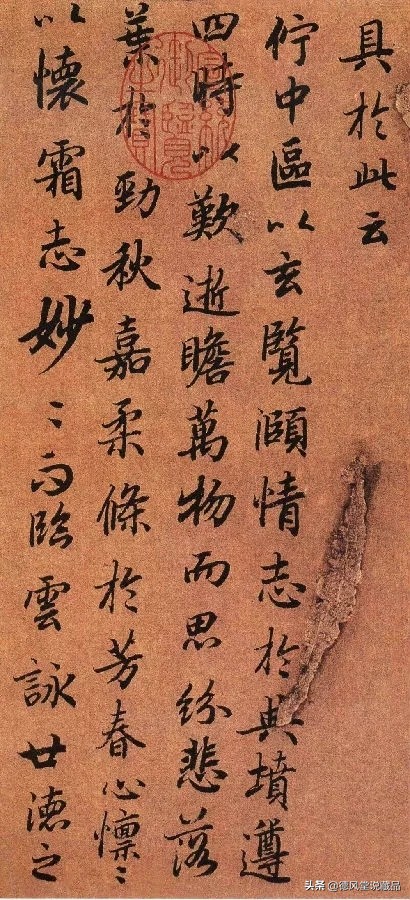 具於此云
佇中區以玄覽頤情志於典墳遵
四時以歎逝瞻萬物而思紛悲落
葉於勁秋嘉柔條於芳春心懍〻
以懷霜志妙〻而臨雲詠廿德之
头条 @德风堂说藏品